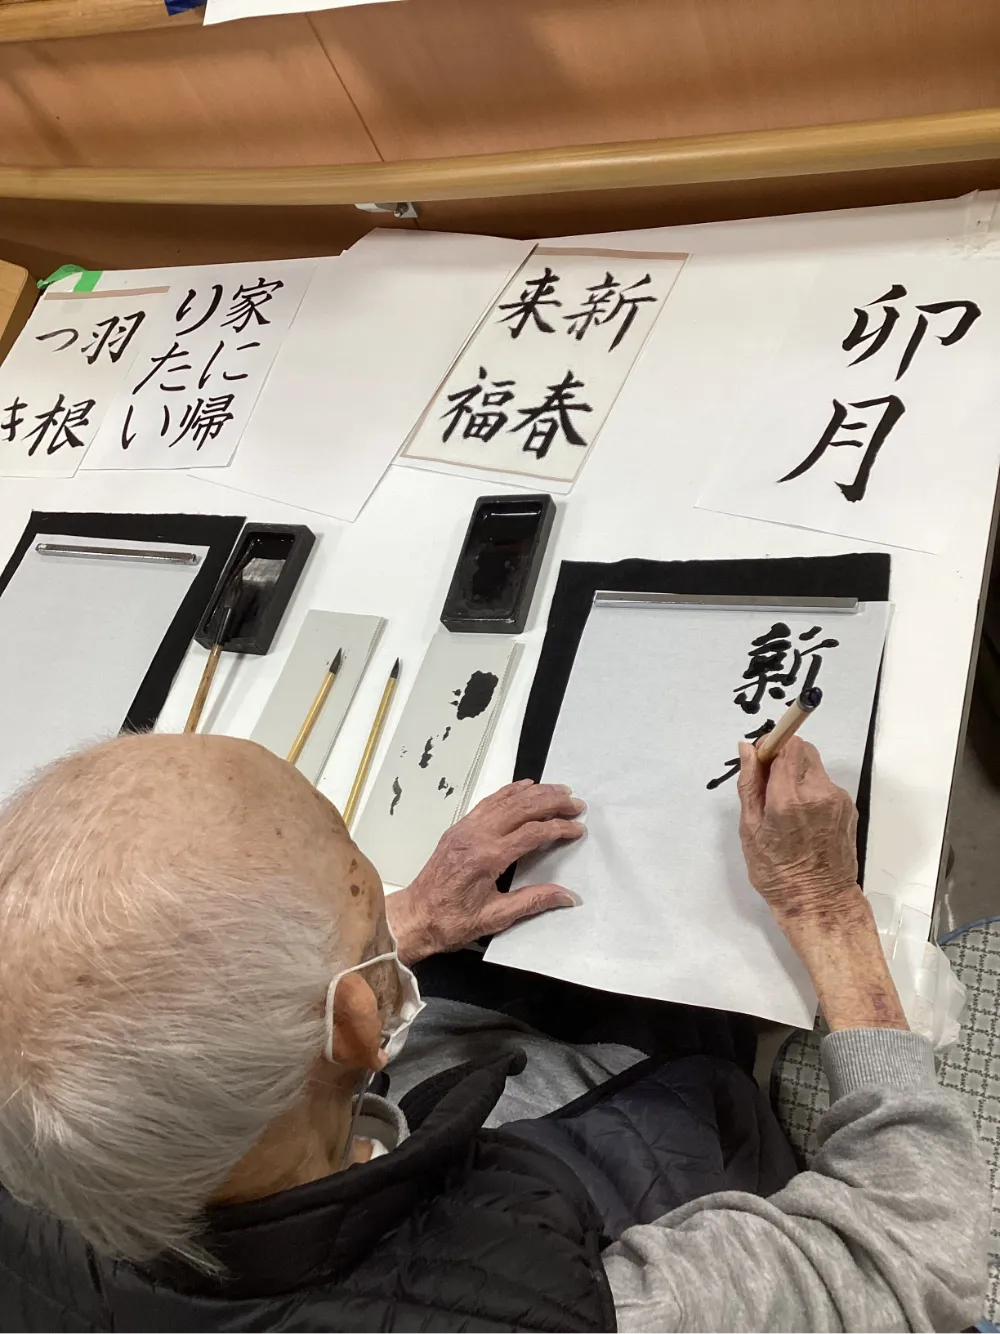 卯月
新春
来福
家に帰
りたい
羽根
つ
新